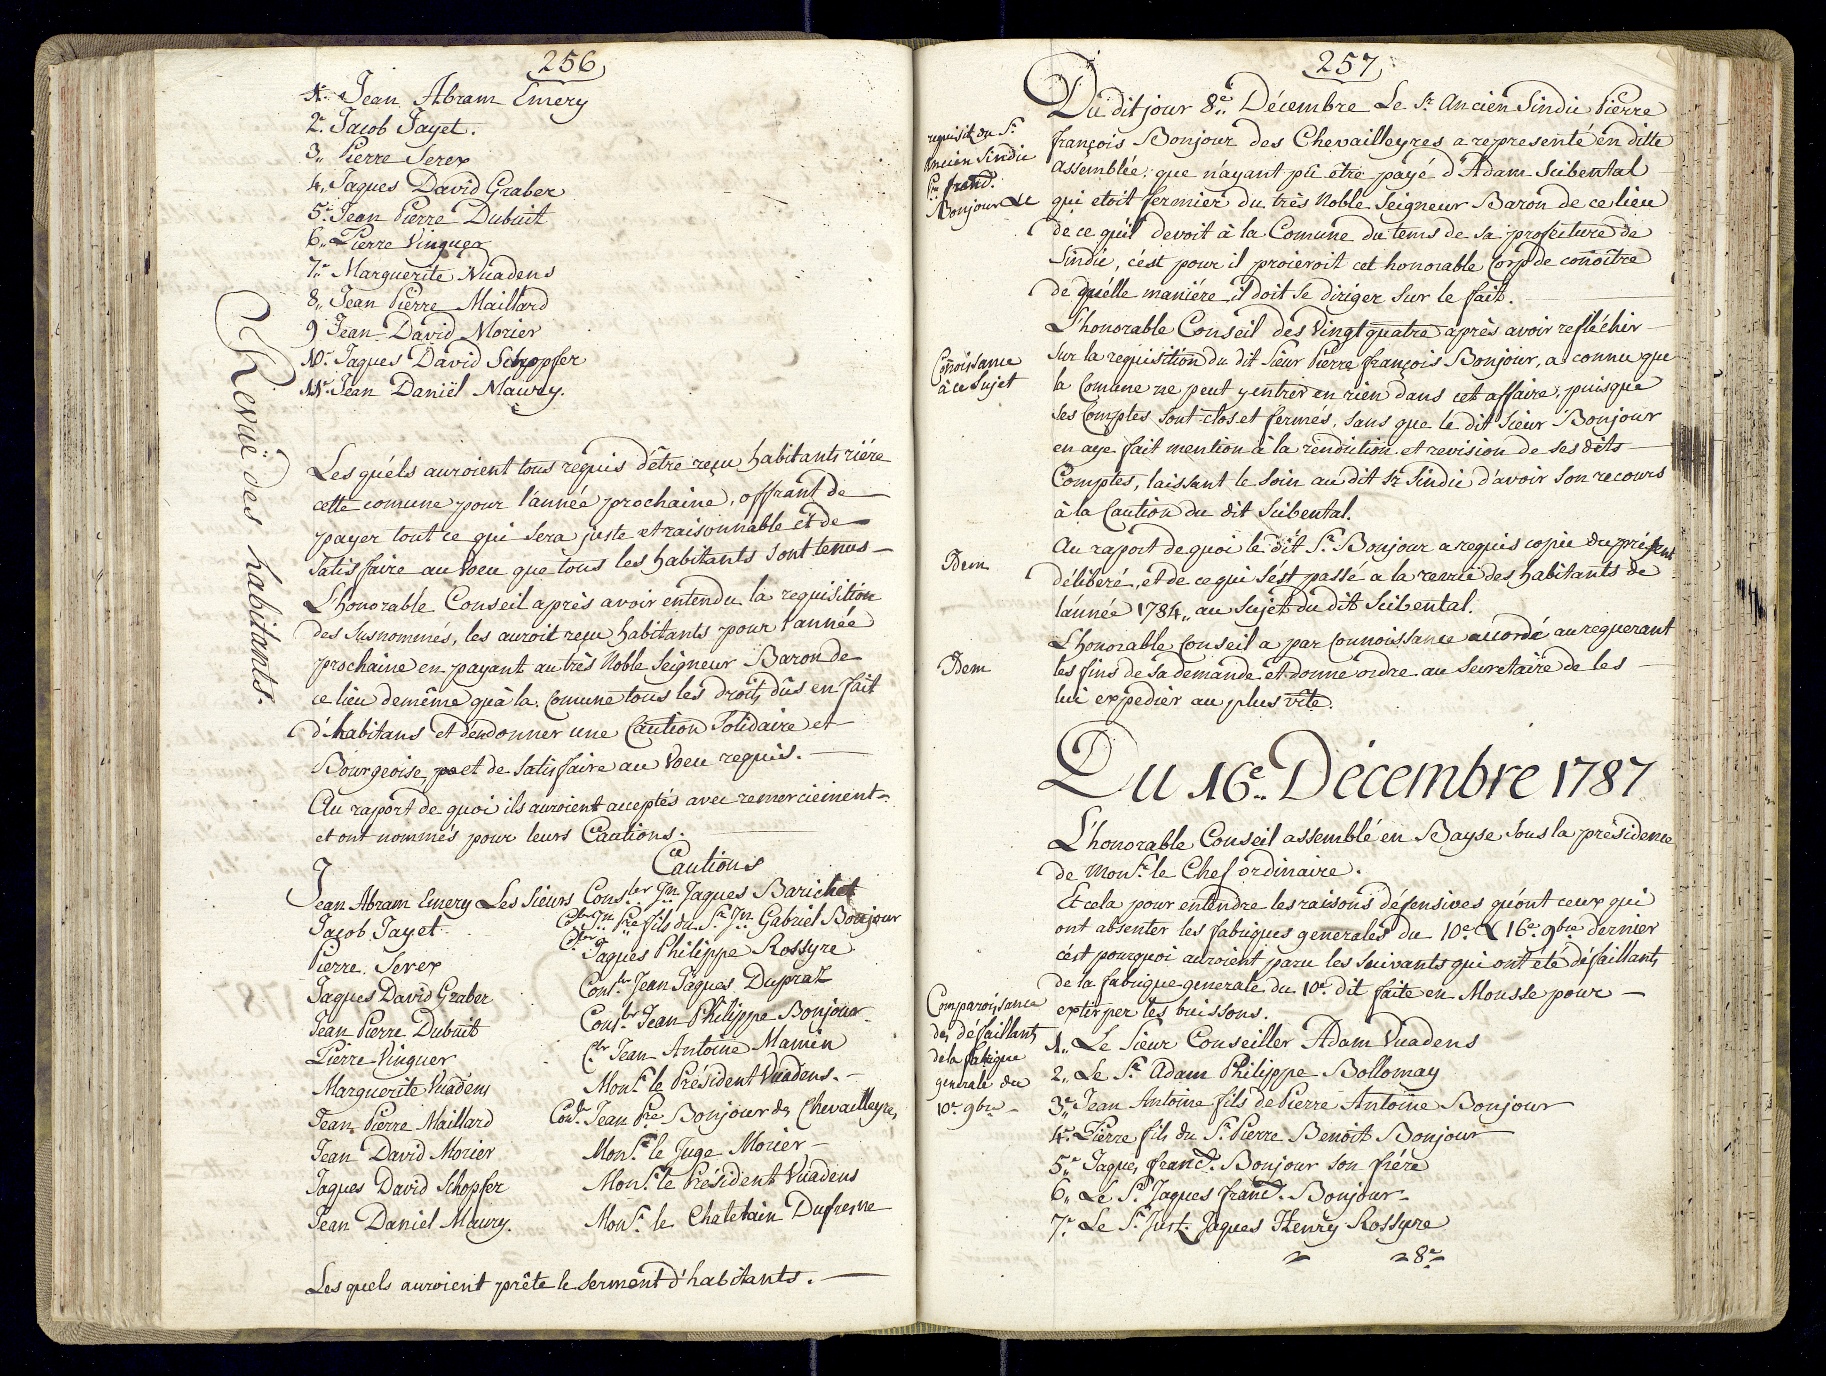 256
1.e Jean Abram Emery
2.e Jacob Jayet.
3.. Pierre Serex
4.. Jaques David Graber
5.e Jean Pierre Dubuit
6.. Pierre Vinguer
7.e Marguerite Vuadens
8.. Jean Pierre Maillard
9 Jean David Morier
10.e Jaques David Schopfer
11.e Jean Daniël Maury.
Revuë des habitants.
Les quéls auroient tous requis d'étre reçu habitants riére
cette comune pour l'année prochaine, offrant de
payer tout ce qui sera juste et raisonnable et de
satisfaire au voeu que tous les habitants sont tenus
L'honorable Conseil après avoir entendu la requisition
des susnommés, les auroit reçu habitants pour l'année
prochaine en payant au très Noble Seigneur Baron de
ce lieu de même qu'à la Comune tous les droits dûs en fait
d'habitans et d'en donner une Caution Solidaire et
Bourgeoise et de satisfaire au voeu requis.
Au raport de quoi ils auroient acceptés avec remerciement
et ont nommés pour leurs Cautions.
Cautions
Jean Abram Emery Les Sieurs Cons.ler J.n Jaques Barichet
Jacob Jayet C.ler J.n P.re fils du S.r J.n Gabriel Bonjour
Pierre Serex C.ler Jaques Philippe Rossyre
Jaques David Graber Cons.ler Jean Jaques Dupraz
Jean Pierre Dubuit Cons.ler Jean Philippe Bonjour
Pierre Vinguer C.ler Jean Antoine Mamin
Marguerite Vuadens Mons.r le Président Vuadens.
Jean Pierre Maillard Con.r Jean P.re Bonjour des Chevailleyres
Jean David Morier Mons.r le Juge Morier
Jaques David Schopfer Mons.r le Président Vuadens
Jean Daniel Maury. Mons.r le Chatelain Dufresne
Les quels auroient prête le Serment d'habitants.
257
Du dit jour 8.e Décembre Le S.r Ancien Sindic Pierre
requisit du S.r
Ancien Sindic
P.re franç.
Bonjour &c
françois Bonjour des Chevailleyres a representé en ditte
Assemblée, que n'ayant pû être payé d'Adam Subental
qui etoit fermier du très Noble Seigneur Baron de ce lieu
de ce qu'il devoit à la Comune du tems de sa profecture de
Sindic, c'est pour il proieroit cet honorable Corp de conoitre
de quélle maniére il doit se diriger sur le fait.
L'honorable Conseil des Vingt quatre après avoir refléchir
Conoissance
à ce sujet
Sur la requisition du dit Sieur Pierre françois Bonjour, a connu que
la Comune ne peut y entrer en rien dans cet affaire, puisque
ses Comptes sont clos et fermés, sans que le dit Sieur Bonjour
en aye fait mention à la rendition et revision de ses dits
Comptes, laissant le soin au dit S.r Sindic d'avoir son recours
à la Caution du dit Subental.
Idem
Au raport de quoi le dit S.r Bonjour a requis copie du présent
déliberé, et de ce qui s'ést passé a la revuë des habitants de
l'année 1784.. au Sujet du dit Subental.
Idem
L'honorable Conseil a par Connoissance accordé au requerant
les fins de sa demande et donné ordre au Secretaire de les
lui expedier au plus vîte.
Du 16.e Décembre 1787
L'honorable Conseil assemblé en Bayse sous la présidence
de Mons.r le Chef ordinaire.
Et cela pour entendre les raisons défensives qu'ont ceux qui
ont absenter les fabriques generales du 10.e & 16.e 9bre dernier
c'ést pourquoi auroient paru les suivants qui ont été défaillants
de la fabrique generale du 10.e dit faite en Mousse pour
extirper les buissons.
Comparoissance
des défaillants
de la fabrique
generale du
10.e 9bre
1.. Le Sieur Conseiller Adam Vuadens
2.. Le S.r Adam Philippe Bollomay
3.e Jean Antoine fils de Pierre Antoine Bonjour
4.e Pierre fils du S.r Pierre Benoit Bonjour
5.e Jaques franç. Bonjour son frére
6.. Le S.r Jaques franç. Bonjour
7.e Le S.r Just. Jaques Henry Rossyre
8.e